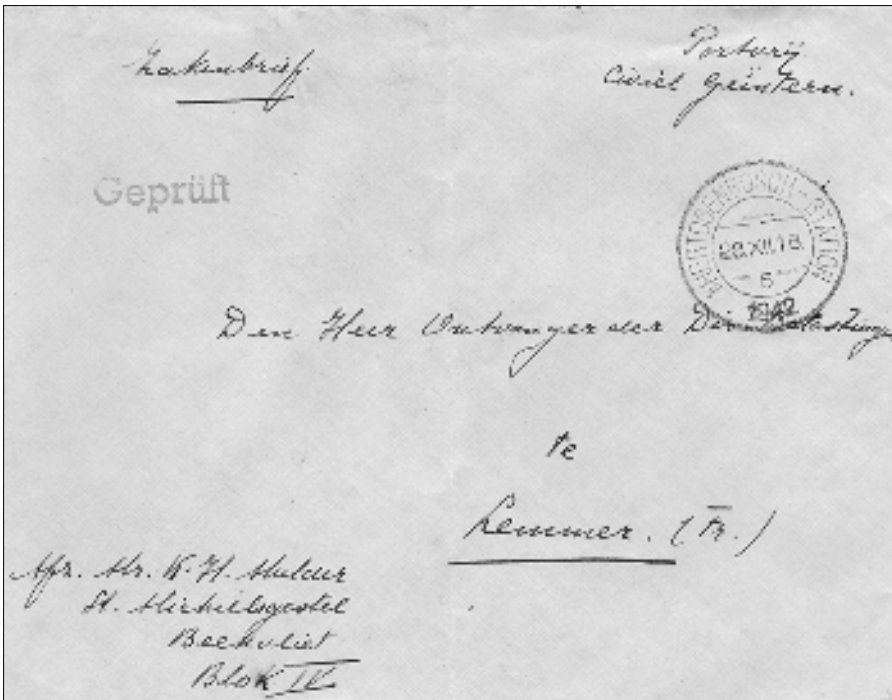 Zakenbrief.
Portvrij
Civiel Geïntern.
Geprüft
'S HERTOGENBOSCH - STATION
28.XII.18
1942
Den Heer Ontvanger der Dir. Belastingen
te
Lemmer. (Fr.)
Afz. Mr. K. H. Mulder
St. Michielsgestel
Beekvliet
Blok IV